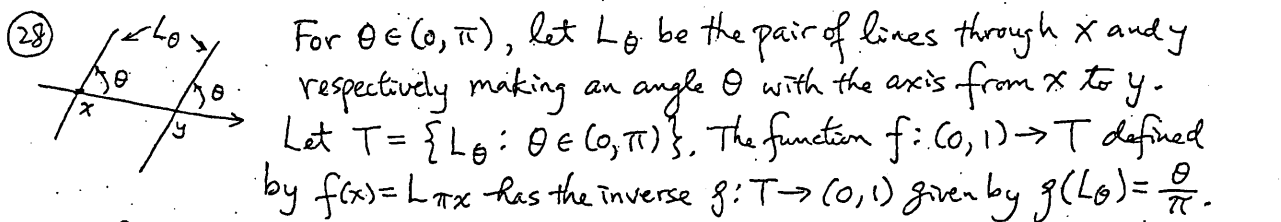 (28) For θ ∈ (0, π), let L_θ be the pair of lines through x and y
respectively making an angle θ with the axis from x to y.
Let T = {L_θ : θ ∈ (0, π)}. The function f: (0, 1) → T defined
by f(x) = L_πx has the inverse g: T → (0, 1) given by g(L_θ) = θ/π.
L_θ
θ
θ
x
y